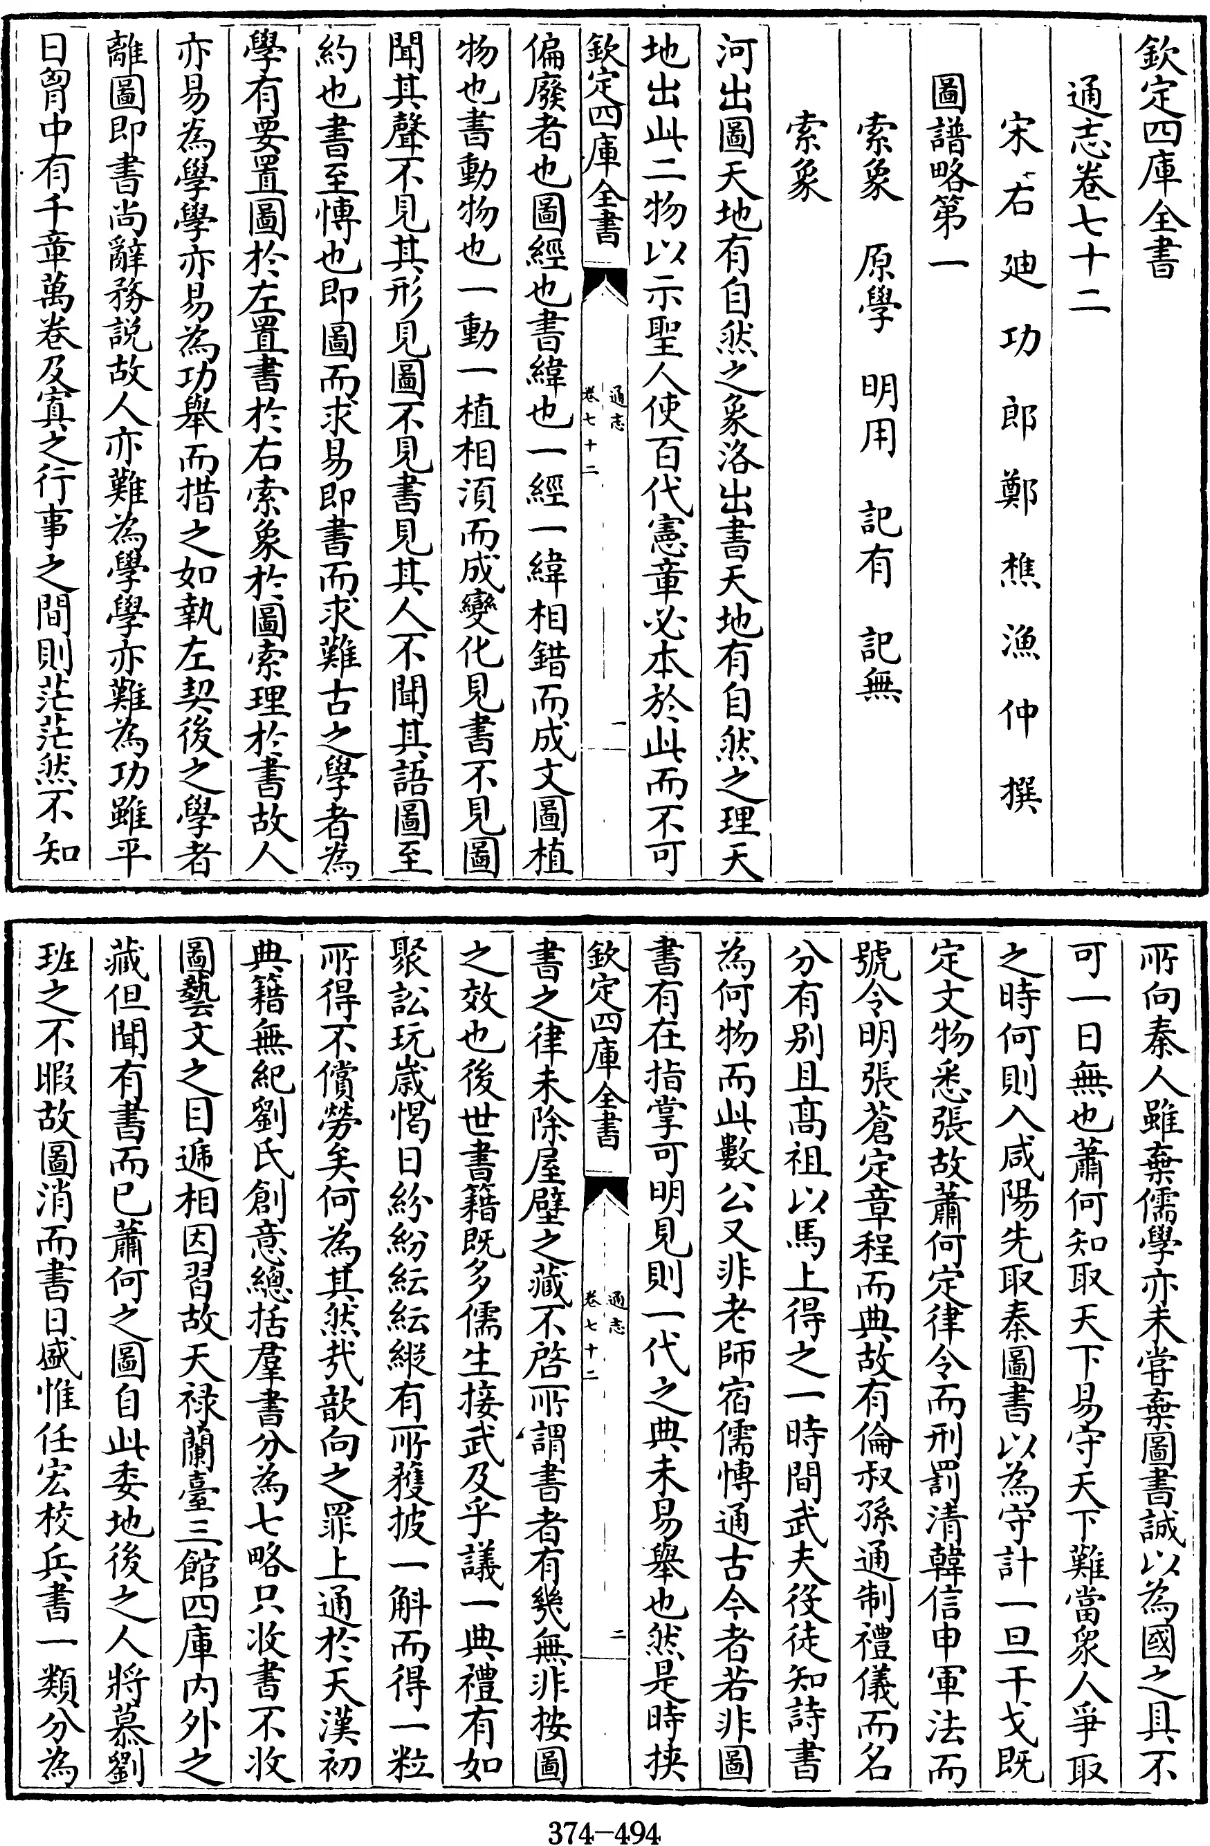 欽定四庫全書
通志卷七十二
宋右迪功郎鄭樵漁仲撰
圖譜略第一
索象　原學　明用　記有　記無
索象
河出圖天地有自然之象洛出書天地有自然之理天
地出此二物以示聖人使百代憲章必本於此而不可
偏廢者也圖經也書緯也一經一緯相錯而成文圖植
物也書動物也一動一植相須而成變化見書不見圖
聞其聲不見其形見圖不見書見其人不聞其語圖至
約也書至愽也即圖而求易即書而求難古之學者為
學有要置圖於左置書於右索象於圖索理於書故人
亦易為學學亦易為功舉而措之如執左契後之學者
離圖即書尚辭務説故人亦難為學學亦難為功雖平
日胷中有千章萬卷及寘之行事之間則茫茫然不知
欽定四庫全書
通志
卷七十二
一
所向秦人雖棄儒學亦未甞棄圖書誠以為國之具不
可一日無也蕭何知取天下易守天下難當衆人爭取
之時何則入咸陽先取秦圖書以為守計一旦干戈既
定文物悉張故蕭何定律令而刑罰清韓信申軍法而
號令明張蒼定章程而典故有倫叔孫通制禮儀而名
分有别且髙祖以馬上得之一時間武夫役徒知詩書
為何物而此數公又非老師宿儒愽通古今者若非圖
書有在指掌可明見則一代之典未易舉也然是時挾
書之律未除屋壁之藏不啓所謂書者有幾無非按圖
之效也後世書籍既多儒生接武及乎議一典禮有如
聚訟玩嵗愒日紛紛紜紜縱有所獲披一斛而得一粒
所得不償勞矣何為其然哉歆向之罪上通於天漢初
典籍無紀劉氏創意總括羣書分為七略只收書不收
圖藝文之目遞相因習故天禄蘭臺三館四庫内外之
藏但聞有書而已蕭何之圖自此委地後之人將慕劉
班之不暇故圖消而書日盛惟任宏校兵書一類分為
欽定四庫全書
通志
卷七十二
二
374-494